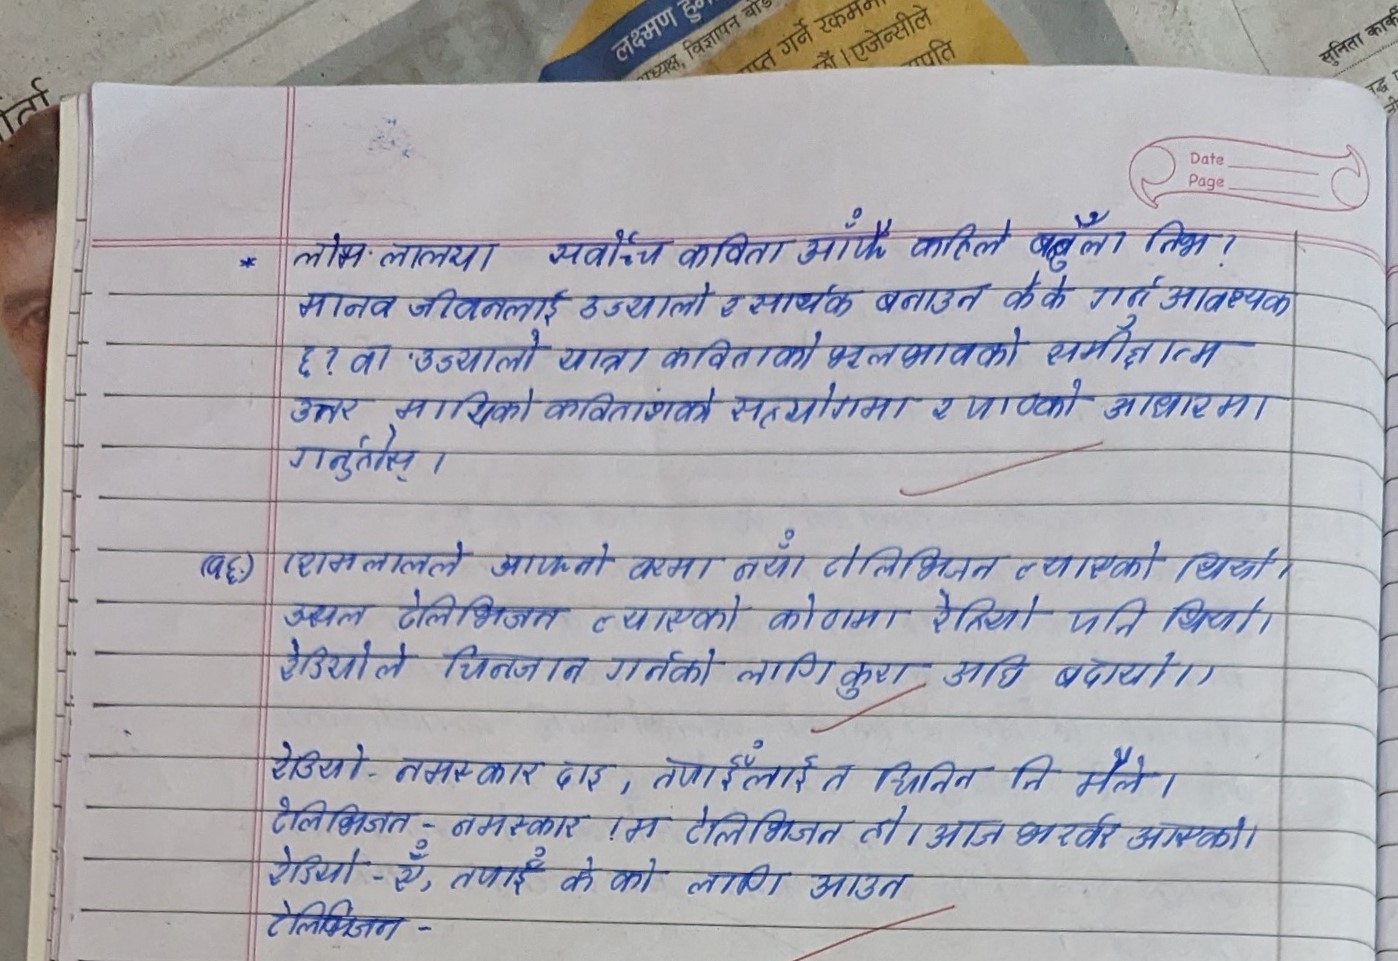 लक्ष्मण हुम
अध्यक्ष, विज्ञापन बोर्ड
प्राप्त गर्ने रकममा
एजेन्सीले
सुनिता कार्की
र्ता
Date
Page
* लोभ लालया सर्वोच्च कविता आँफै कहिले बन्छौला तिम ?
मानव जीवनलाई उज्यालो र सार्थक बनाउन के के गर्नु आवश्यक
छ ? वा 'उज्यालो यात्रा कविताको मूलभावको समीक्षात्म
उत्तर माथिको कवितांशको सहयोगमा र पाठको आधारमा
गर्नुहोस् ।
(१६) रामलालले आफ्नो घरमा नयाँ टेलिभिजन ल्याएको थियो ।
उसले टेलिभिजन ल्याएको कोठामा रेडियो पनि थियो ।
रेडियोले चिनजान गर्नको लागि कुरा अघि बढायो ।।
रेडियो - नमस्कार दाइ , तपाईँलाई त चिनिन नि मैले ।
टेलिभिजन - नमस्कार ! म टेलिभिजन हो । आज भर्खर आएको ।
रेडियो - एँ, तपाईँ के को लागि आउन
टेलिभिजन -